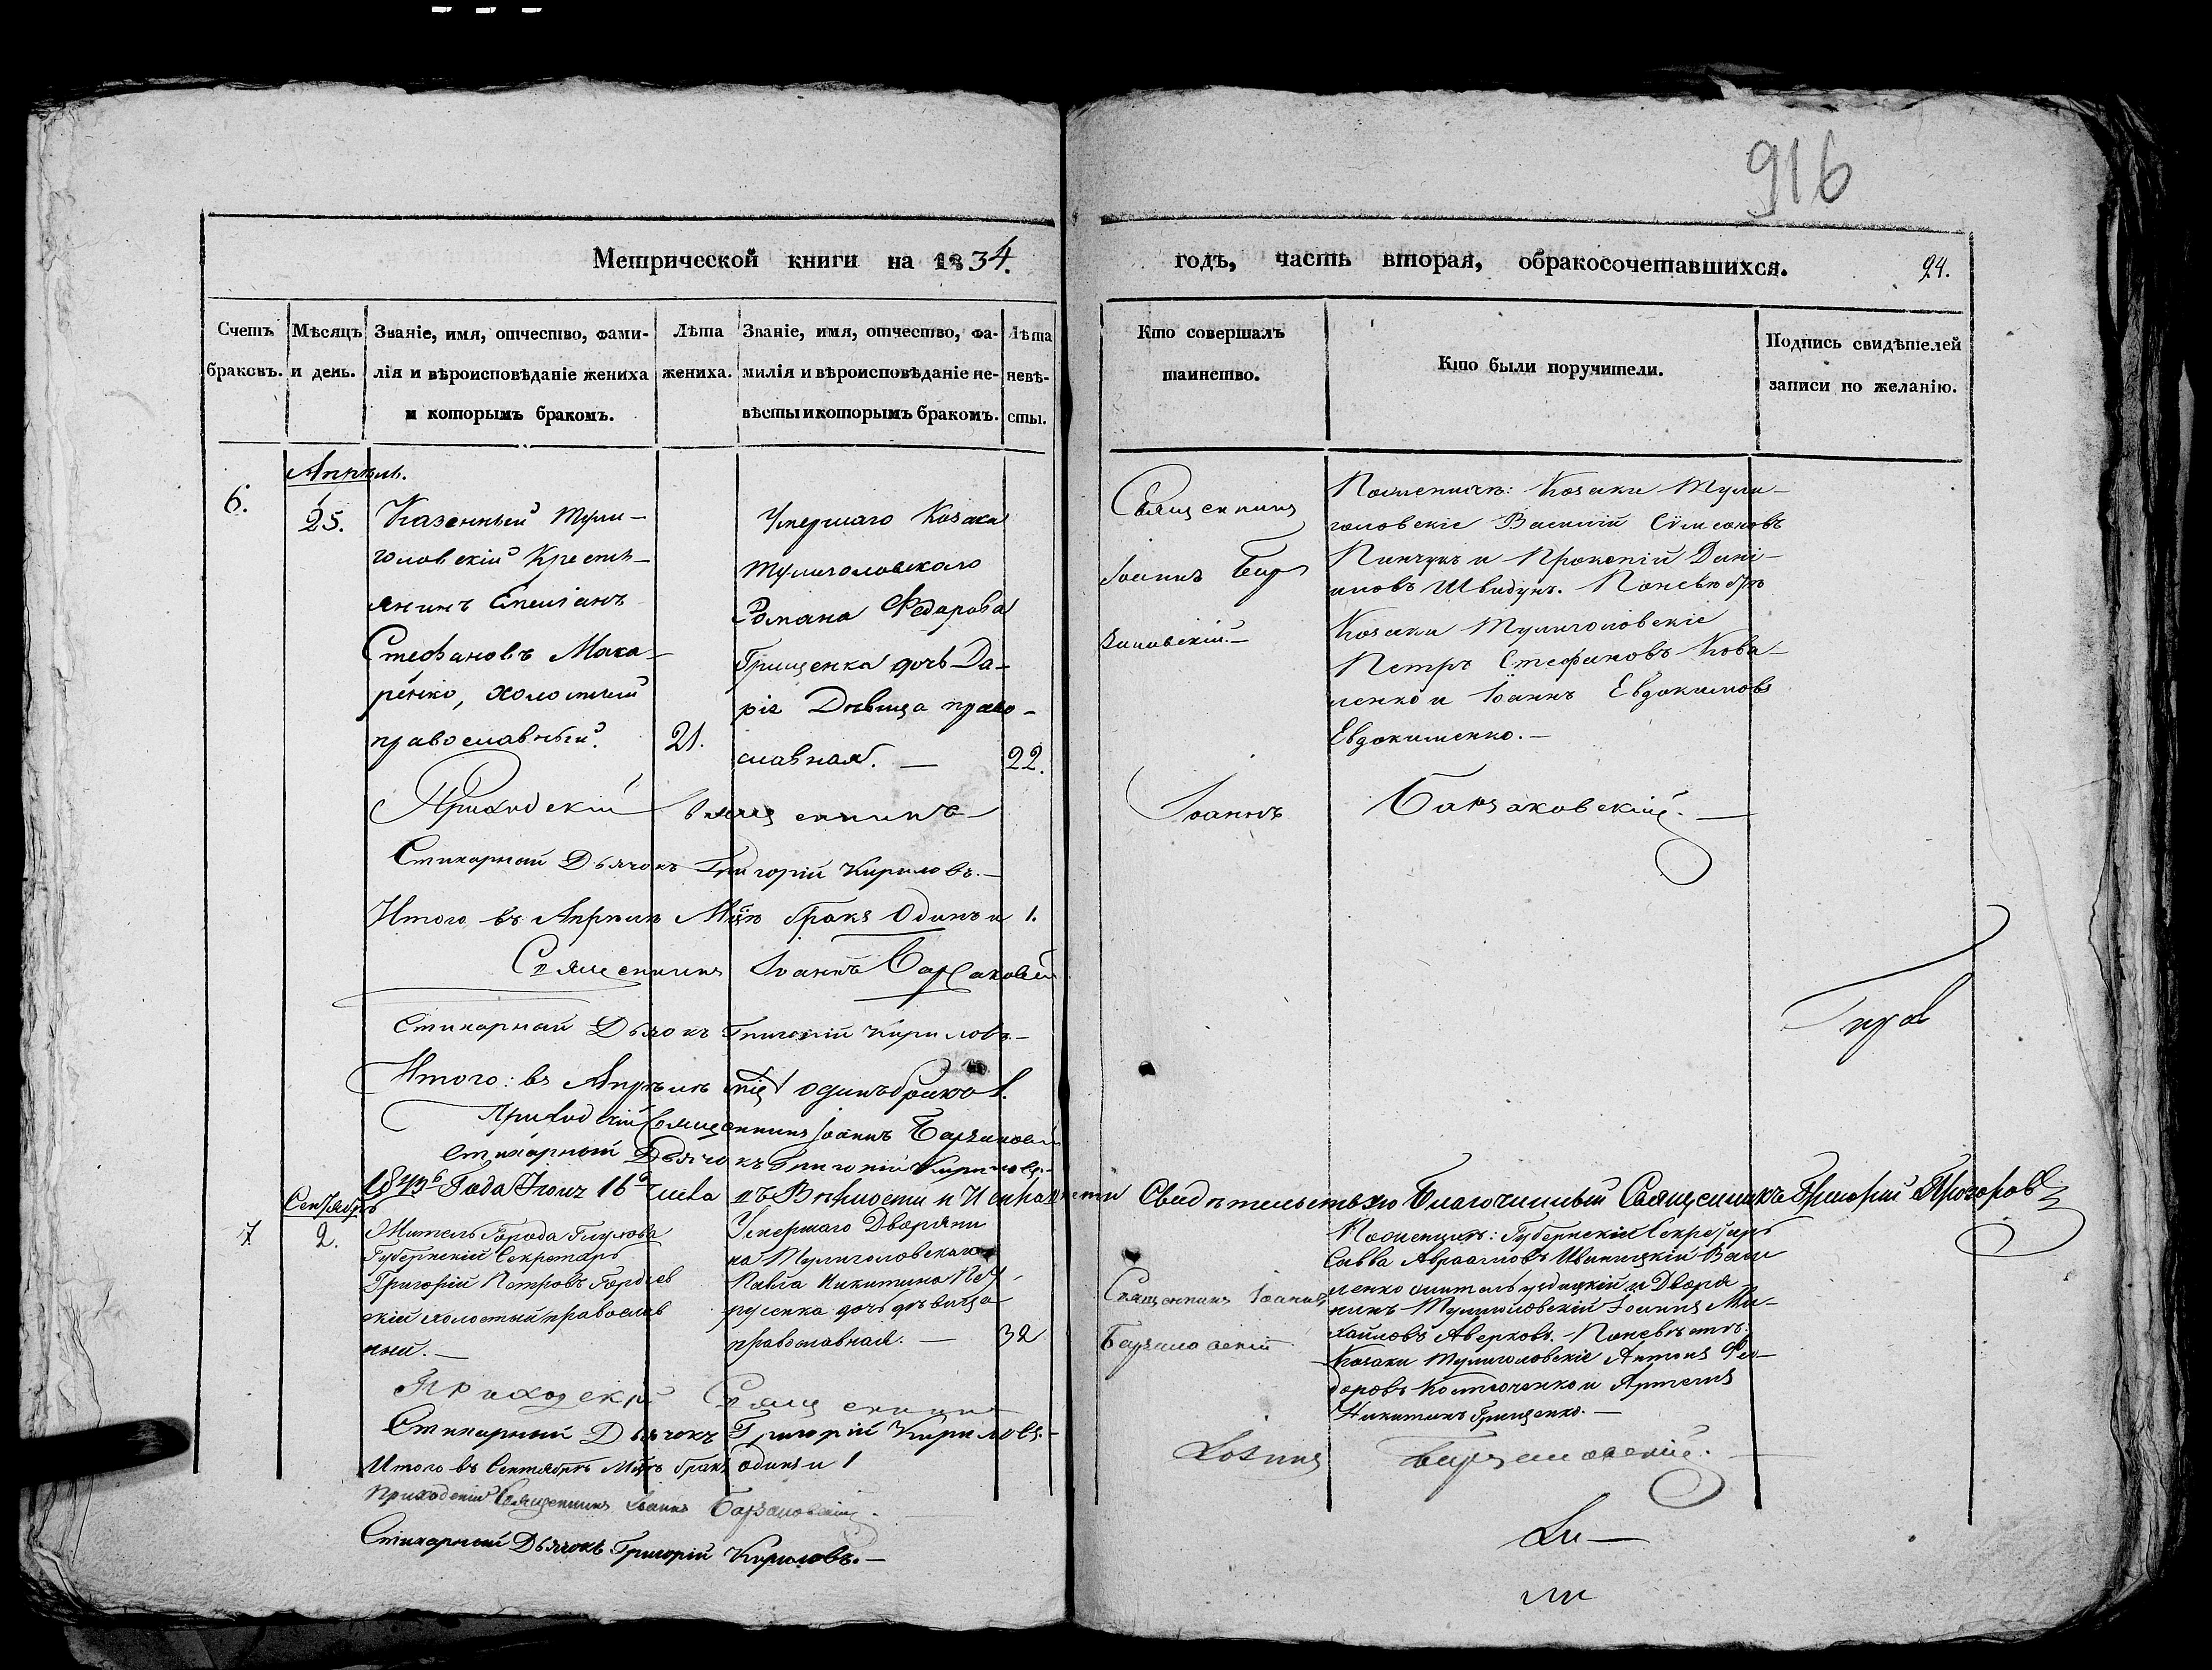 916
Метрической книги на 1834.
годъ, часть вторая, обракосочетавшихся.
94.
Счетъ браковъ.
Мѣсяцъ и день.
Званіе, имя, отчество, фами-
лія и вѣроисповѣданіе жениха
и которымъ бракомъ.
Лѣта
жениха.
Званіе, имя, отчество, фа-
милія и вѣроисповѣданіе не-
вѣсты и которымъ бракомъ.
Лѣта
невѣ-
сты.
Кто совершалъ
таинство.
Кто были поручители.
Подпись свидѣтелей
записи по желанію.
6.
Апрѣль.
25.
Казенный Тули-
головскій Кресть-
янинъ
Стефановъ Мака-
ренко, холостый
православный.
21.
Умершаго Козака
Тулиголовскаго
Романа Федорова
Грищенка дочь Да-
рія Дѣвица право-
славная. —
22.
Священникъ
Іоаннъ
Козаки Тули-
головскіе Василій Сѵмеоновъ
Пинчукъ и Прокопій Дані-
иловъ Швидунъ. По невѣстѣ
Козаки Тулиголовскіе
Петръ Стефановъ Кова-
ленко и Іоаннъ Евдокимовъ
Евдокименко. —
Приходскій Священникъ Іоаннъ
Стихарный Дьячокъ Григорій Кириловъ. —
Итого въ Апрѣлѣ Мцѣ бракъ Одинъ и 1.
Священникъ Іоаннъ
Стихарный Дьячокъ Григорій Кириловъ. —
Итого: въ Апрѣлѣ одинъ бракъ 1.
Приходскій Священникъ Іоаннъ
Стихарный Дьячокъ Григорій Кириловъ. —
Года Іюня 16 числа въ Вѣрности и Исправности Свидѣтельствую Благочинный Священникъ Григорій
7
Сентябрь
2.
Житель Города Глухова
Губернскій Секретарь
Григорій Петровъ
холостый православ
ный. —
Умершаго Дворяни
на Тулиголовскаго
Павла Никитина
дочь дѣвица
православная. —
32
Священникъ Іоаннъ
Губернскій Секретарь
Савва Авраамовъ
и Дворя-
нинъ Тулиголовскій Іоаннъ Ми-
хайловъ Аверковъ. — По невѣстѣ:
Козаки Тулиголовскіе Антонъ Фео-
доровъ Костюченко и Артемій
Никитинъ Грищенко. —
Приходскій Священникъ Іоаннъ
Стихарный Дьячокъ Григорій Кириловъ. —
Итого въ Сентябрѣ Мцѣ бракъ одинъ и 1
Приходскій Священникъ Іоаннъ
Стихарный Дьячокъ Григорій Кириловъ. —